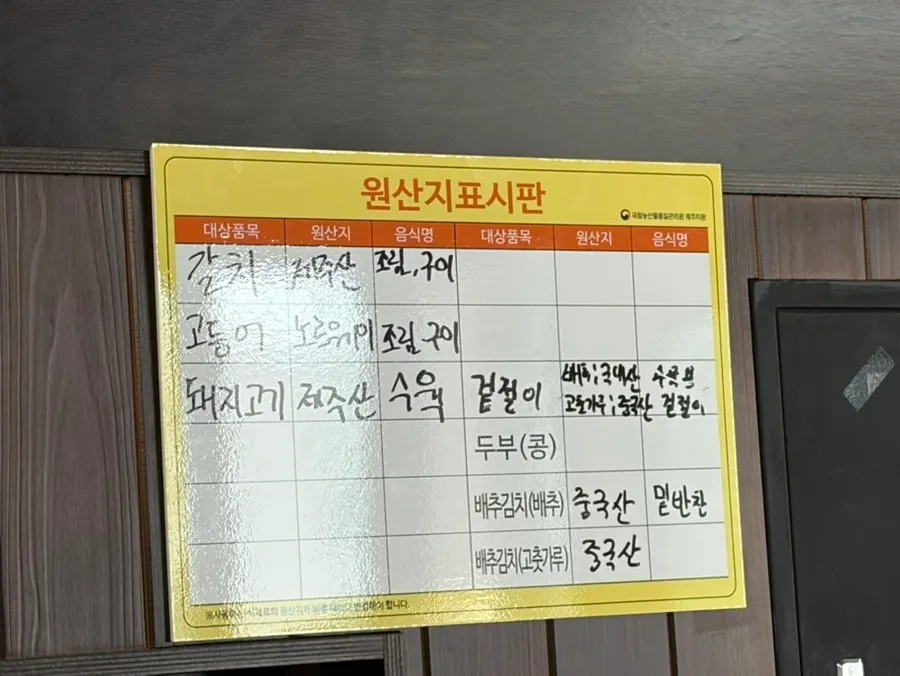 원산지표시판
국립농산물품질관리원 제주지원
대상품목 원산지 음식명 대상품목 원산지 음식명
갈치 제주산 조림,구이
고등어 노르웨이 조림,구이
돼지고기 제주산 수육 겉절이 배추:국내산 수육용
고춧가루:중국산 겉절이
두부(콩)
배추김치(배추) 중국산 밑반찬
배추김치(고춧가루) 중국산
원산지가 합니다.